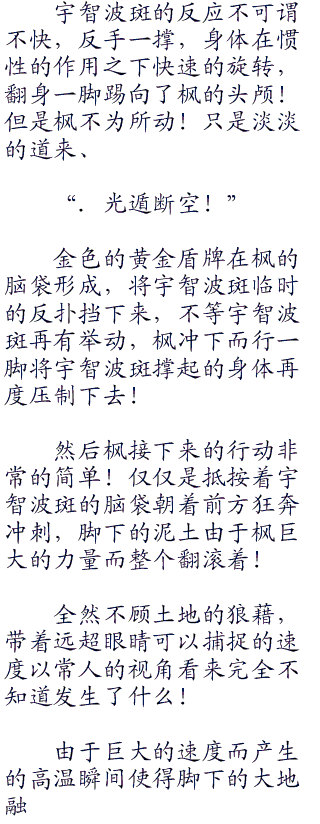 宇智波斑的反应不可谓
不快，反手一撑，身体在惯
性的作用之下快速的旋转，
翻身一脚踢向了枫的头颅！
但是枫不为所动！只是淡淡
的道来、
“．光遁断空！”
金色的黄金盾牌在枫的
脑袋形成，将宇智波斑临时
的反扑挡下来，不等宇智波
斑再有举动，枫冲下而行一
脚将宇智波斑撑起的身体再
度压制下去！
然后枫接下来的行动非
常的简单！仅仅是抵按着宇
智波斑的脑袋朝着前方狂奔
冲刺，脚下的泥土由于枫巨
大的力量而整个翻滚着！
全然不顾土地的狼藉，
带着远超眼睛可以捕捉的速
度以常人的视角看来完全不
知道发生了什么！
由于巨大的速度而产生
的高温瞬间使得脚下的大地
融